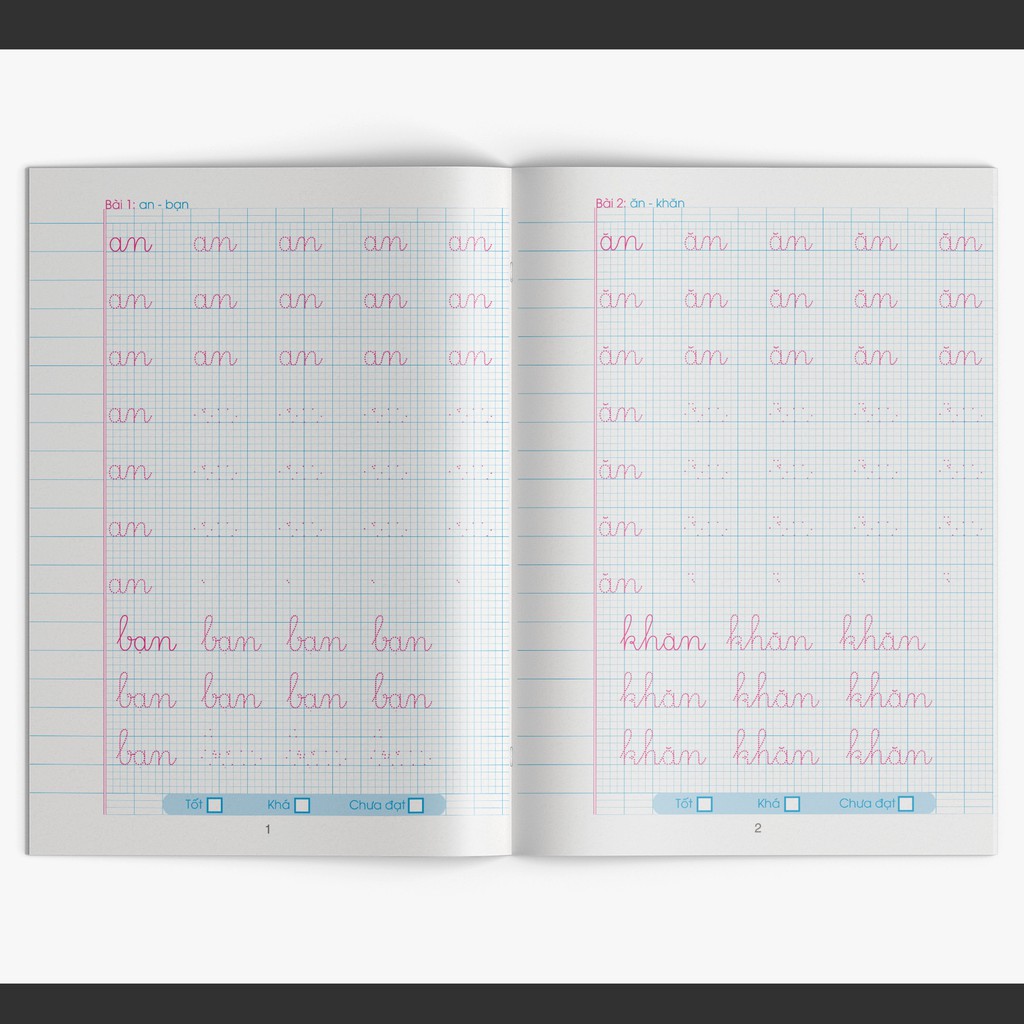 Bài 1: an - bạn
an an an an an
an an an an an
an an an an an
an
an
an
an
bạn ban ban ban
ban ban ban ban
ban
Tốt Khá Chưa đạt
1
Bài 2: ăn - khăn
ăn ăn ăn ăn ăn
ăn ăn ăn ăn ăn
ăn ăn ăn ăn ăn
ăn
ăn
ăn
ăn
khăn khăn khăn
khăn khăn khăn
khăn khăn khăn
Tốt Khá Chưa đạt
2